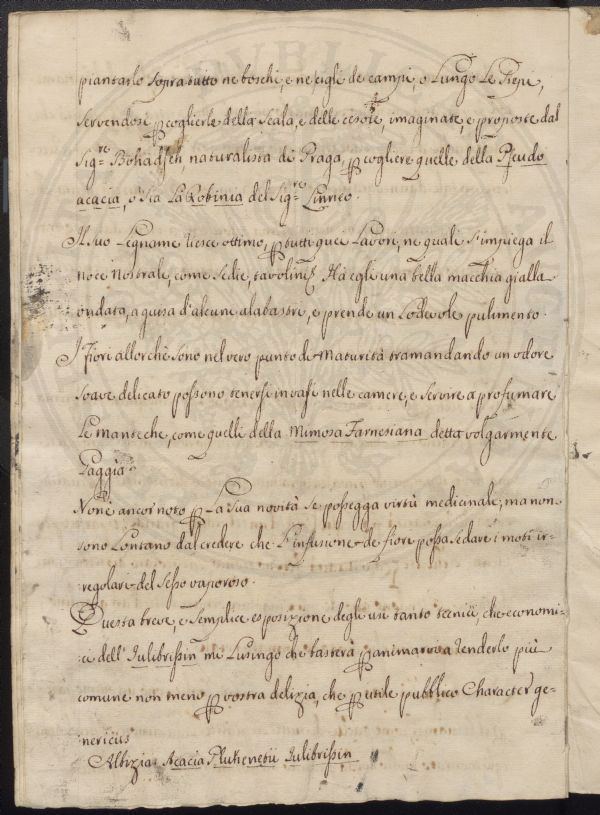 piantarlo sopratutto ne boschi, e ne cigli de campi, o Lungo Le Siepe,
servendosi ꝑ coglierle della Scala, e delle cesoie, imaginate, e proposte dal
Sig.re Bohadsch, naturalista di Praga, ꝑ cogliere quelle della Pseudo
acacia, o sia La Robinia del Sig.re Linneo.
Il suo Legname riesce ottimo, ꝑ tutti quei Lavori, ne quali s'impiega il
noce nostrale, come sedie, tavolini Ha egli una bella macchia gialla
ondata, a guisa d'alcuni alabastri, e prende un Lodevole pulimento.
I fiori allorchè sono nel vero punto di maturità tramandando un odore
soave delicato possono tenersi in vasi nelle camere, e servire a profumare
Le manteche, come quelli della Mimosa Farnesiana detta volgarmente
Gaggia.
Non è ancor noto ꝑ La sua novità se possegga virtù medicinale; ma non
sono Lontano dal credere che L'infusione de fiori possa sedare i moti ir-
regolari del sesso vaporoso.
Questa breve, e semplice esposizione degli usi tanto tecnici, che economi-
ci dell'Iulibrissin mi Lusingo che basterà ꝑ animarvi a renderlo più
comune non meno ꝑ vostra delizia, che ꝑ utile pubblico Character ge-
nericus
Albizia. Acacia Plukenetii Iulibrissin